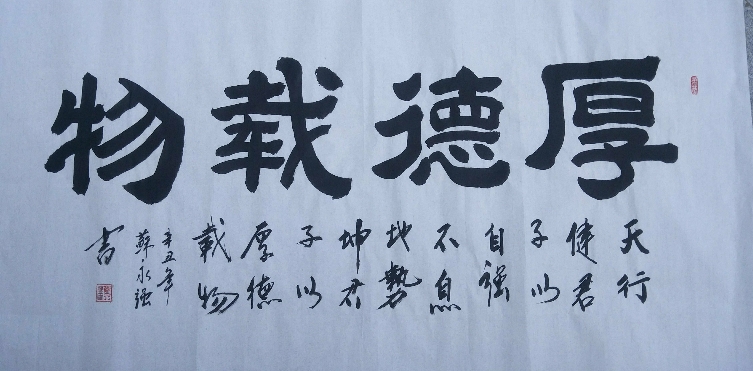 厚德載物
天行
健君
子以
自強
不息
地勢
坤君
子以
厚德
載物
辛丑年
蘇永強
書